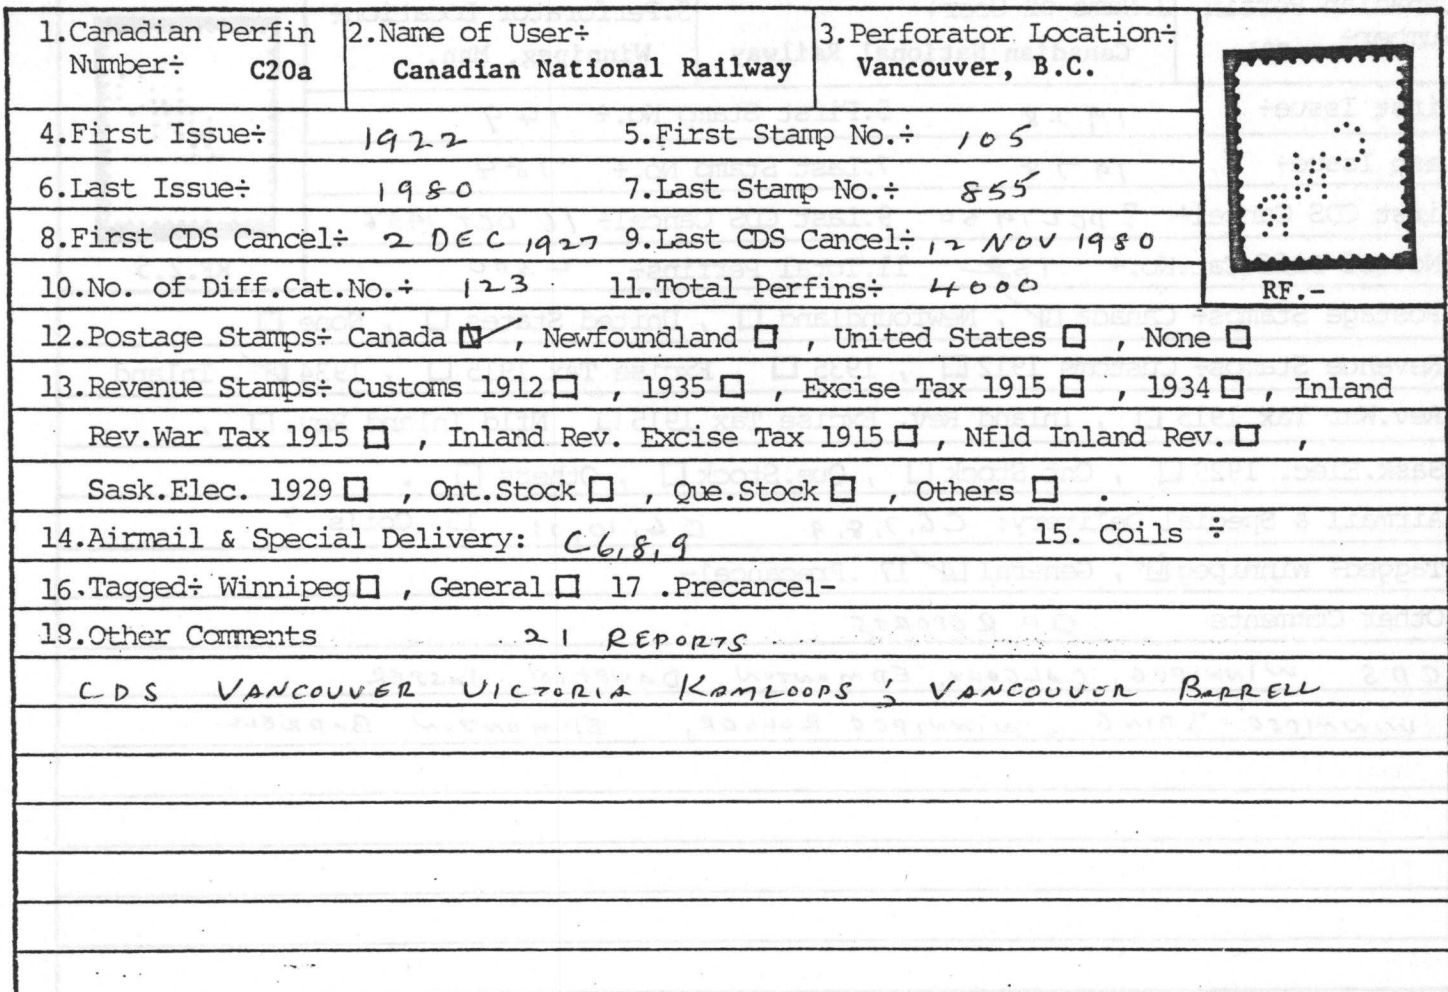 1.Canadian Perfin 2.Name of User÷ 3.Perforator Location÷
Number÷ C20a Canadian National Railway Vancouver, B.C.
4.First Issue÷ 1922 5.First Stamp No.÷ 105
6.Last Issue÷ 1980 7.Last Stamp No.÷ 855
8.First CDS Cancel÷ 2 DEC 1927 9.Last CDS Cancel÷ 12 NOV 1980
10.No. of Diff.Cat.No.÷ 123 11.Total Perfins÷ 4000
CNR
RF.-
12.Postage Stamps÷ Canada ☑ , Newfoundland ☐ , United States ☐ , None ☐
13.Revenue Stamps÷ Customs 1912 ☐ , 1935 ☐ , Excise Tax 1915 ☐ , 1934 ☐ , Inland
Rev.War Tax 1915 ☐ , Inland Rev. Excise Tax 1915 ☐ , Nfld Inland Rev. ☐ ,
Sask.Elec. 1929 ☐ , Ont.Stock ☐ , Que.Stock ☐ , Others ☐ .
14.Airmail & Special Delivery: C6,8,9 15. Coils ÷
16.Tagged÷ Winnipeg ☐ , General ☐ 17 .Precancel-
18.Other Comments 21 REPORTS
CDS VANCOUVER VICTORIA KAMLOOPS ; VANCOUVER BARRELL